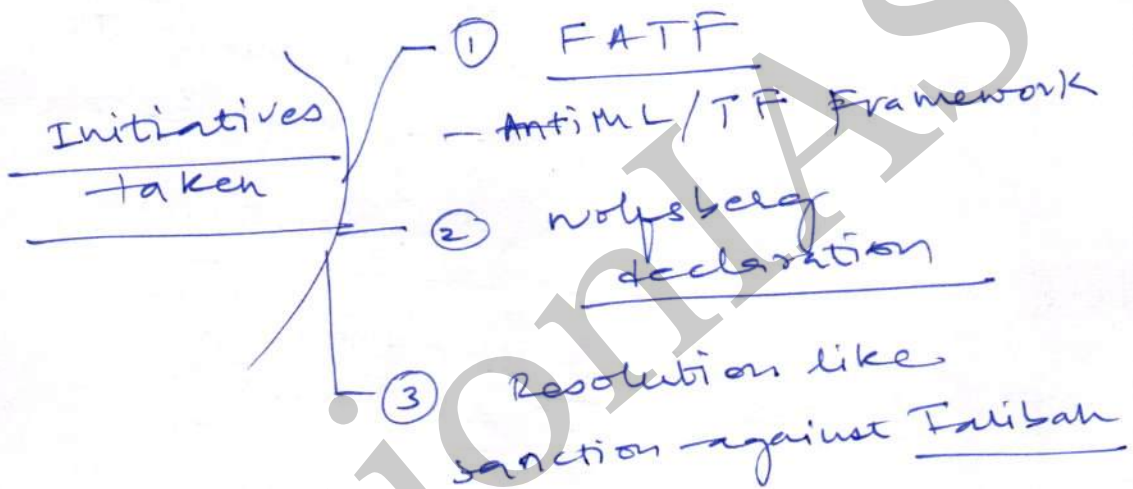 Initiatives
taken
① FATF
- Anti ML/TF Framework
② Wolfsberg
declaration
③ Resolution like
sanction against Taliban
ionIAS